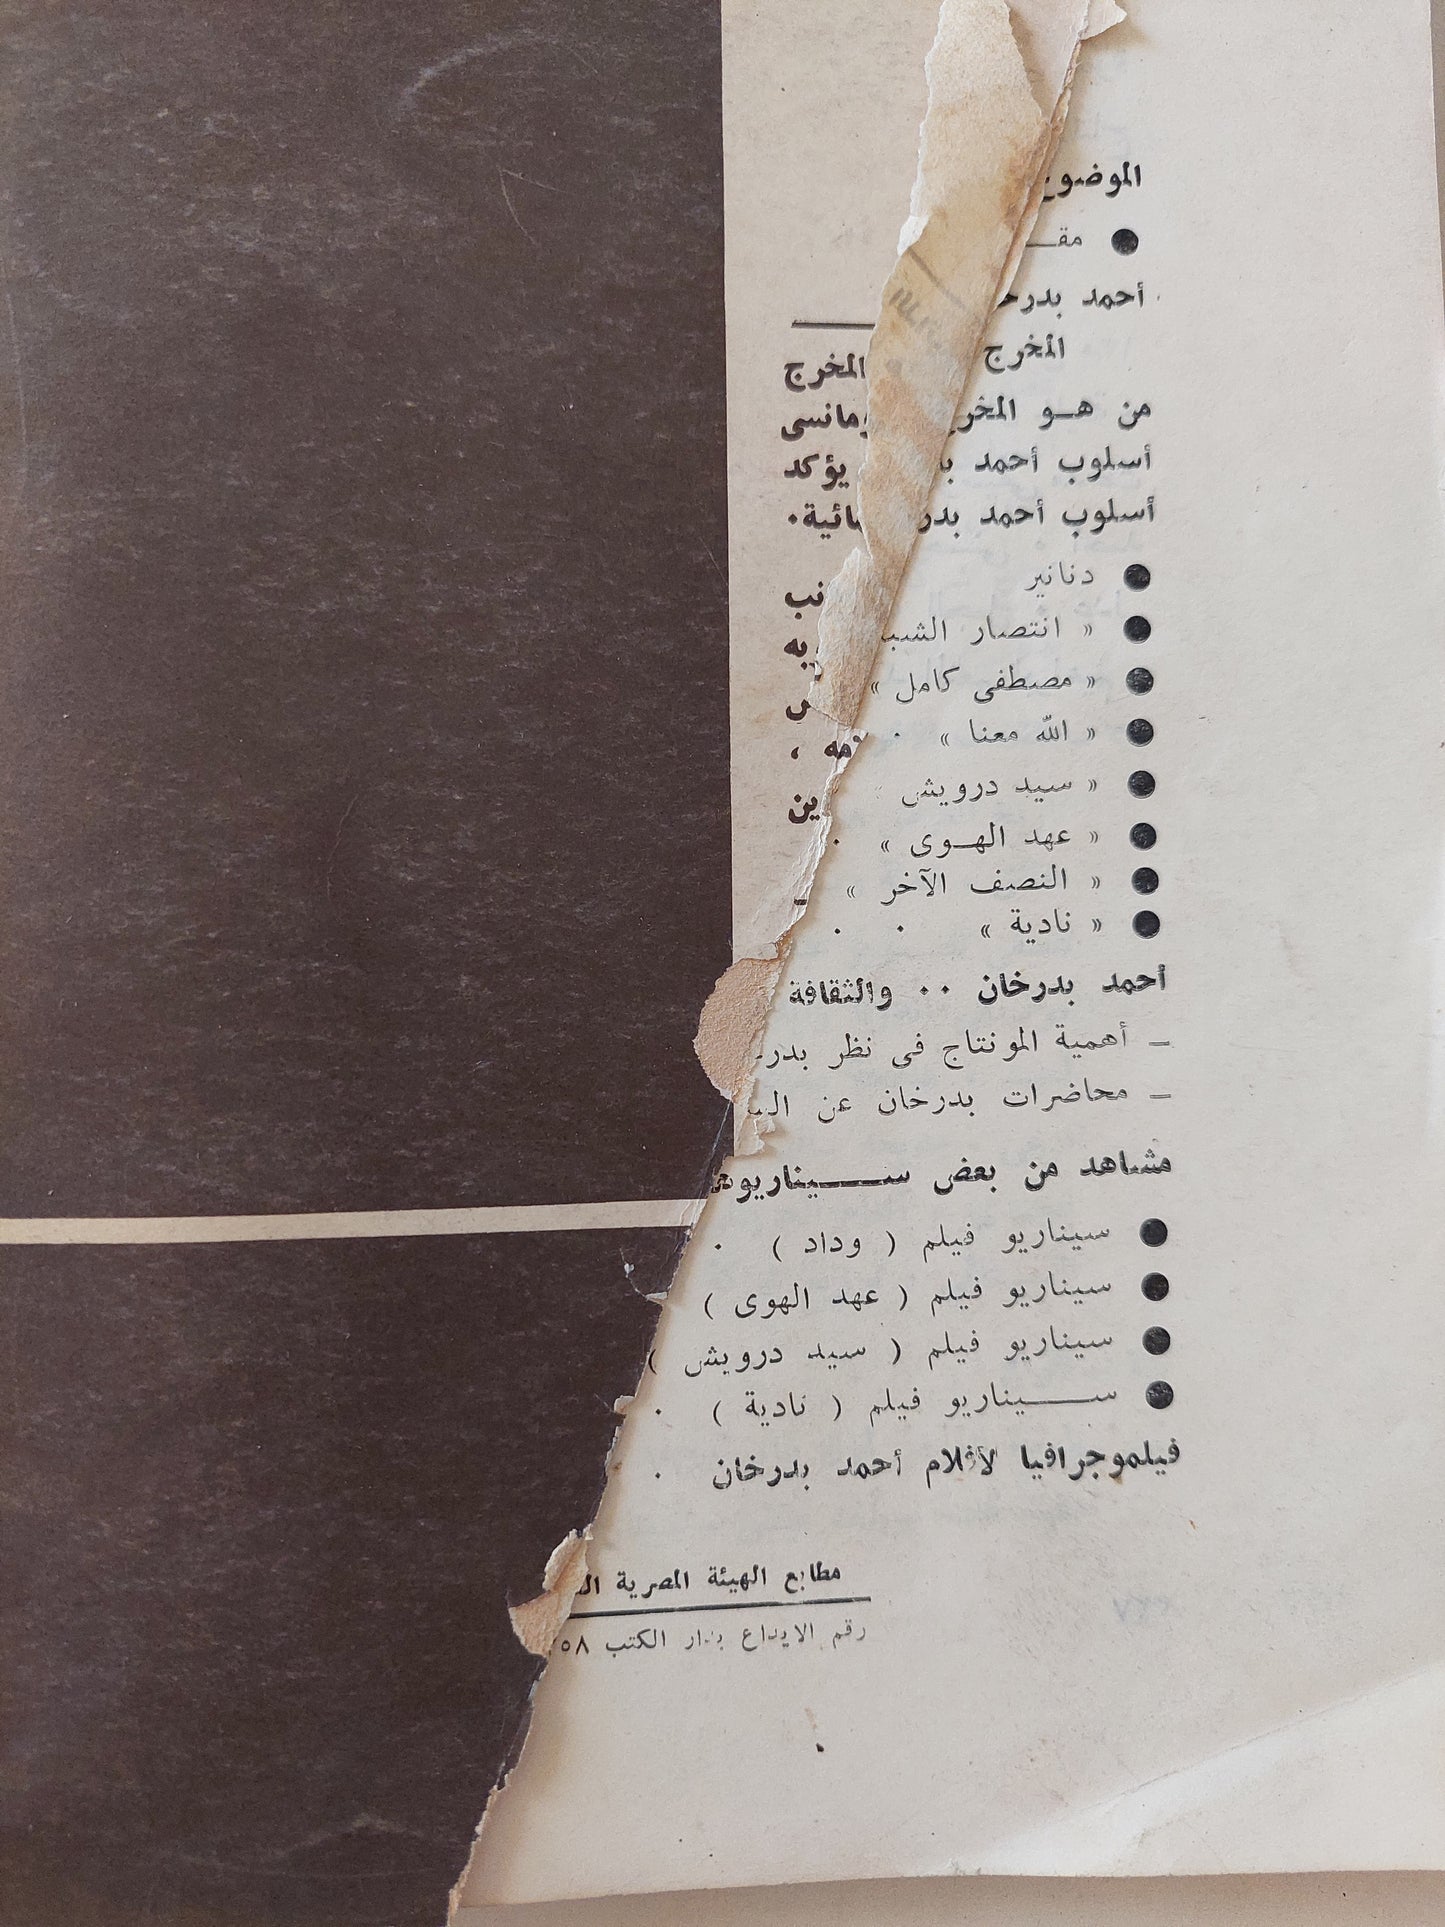 الموضوع
● مقـــ
أحمد بدرخـ
المخرج
المخرج
من هـو المخرج
ومانسى
أسلوب أحمد بـ
يؤكد
أسلوب أحمد بدر
ـائية.
● دنانير
نب
● « انتصار الشبـ
ـريه
● « مصطفى كامل »
● « الله معنا » .
ـمه ،
● « سيد درويش
ين
● « عهد الهـوى » .
● « النصف الآخر »
● « نادية » . .
أحمد بدرخان .. والثقافة
— أهمية المونتاج فى نظر بدر
— محاضرات بدرخان عن السـ
مشاهد من بعض ســـيناريوهـ
● سيناريو فيلم ( وداد ) .
● سيناريو فيلم ( عهد الهوى )
● سيناريو فيلم ( سيد درويش )
● ســـيناريو فيلم ( نادية ) .
فيلموجرافيا لأفلام أحمد بدرخان .
مطابع الهيئة المصرية
رقم الايداع بدار الكتب ٥٨